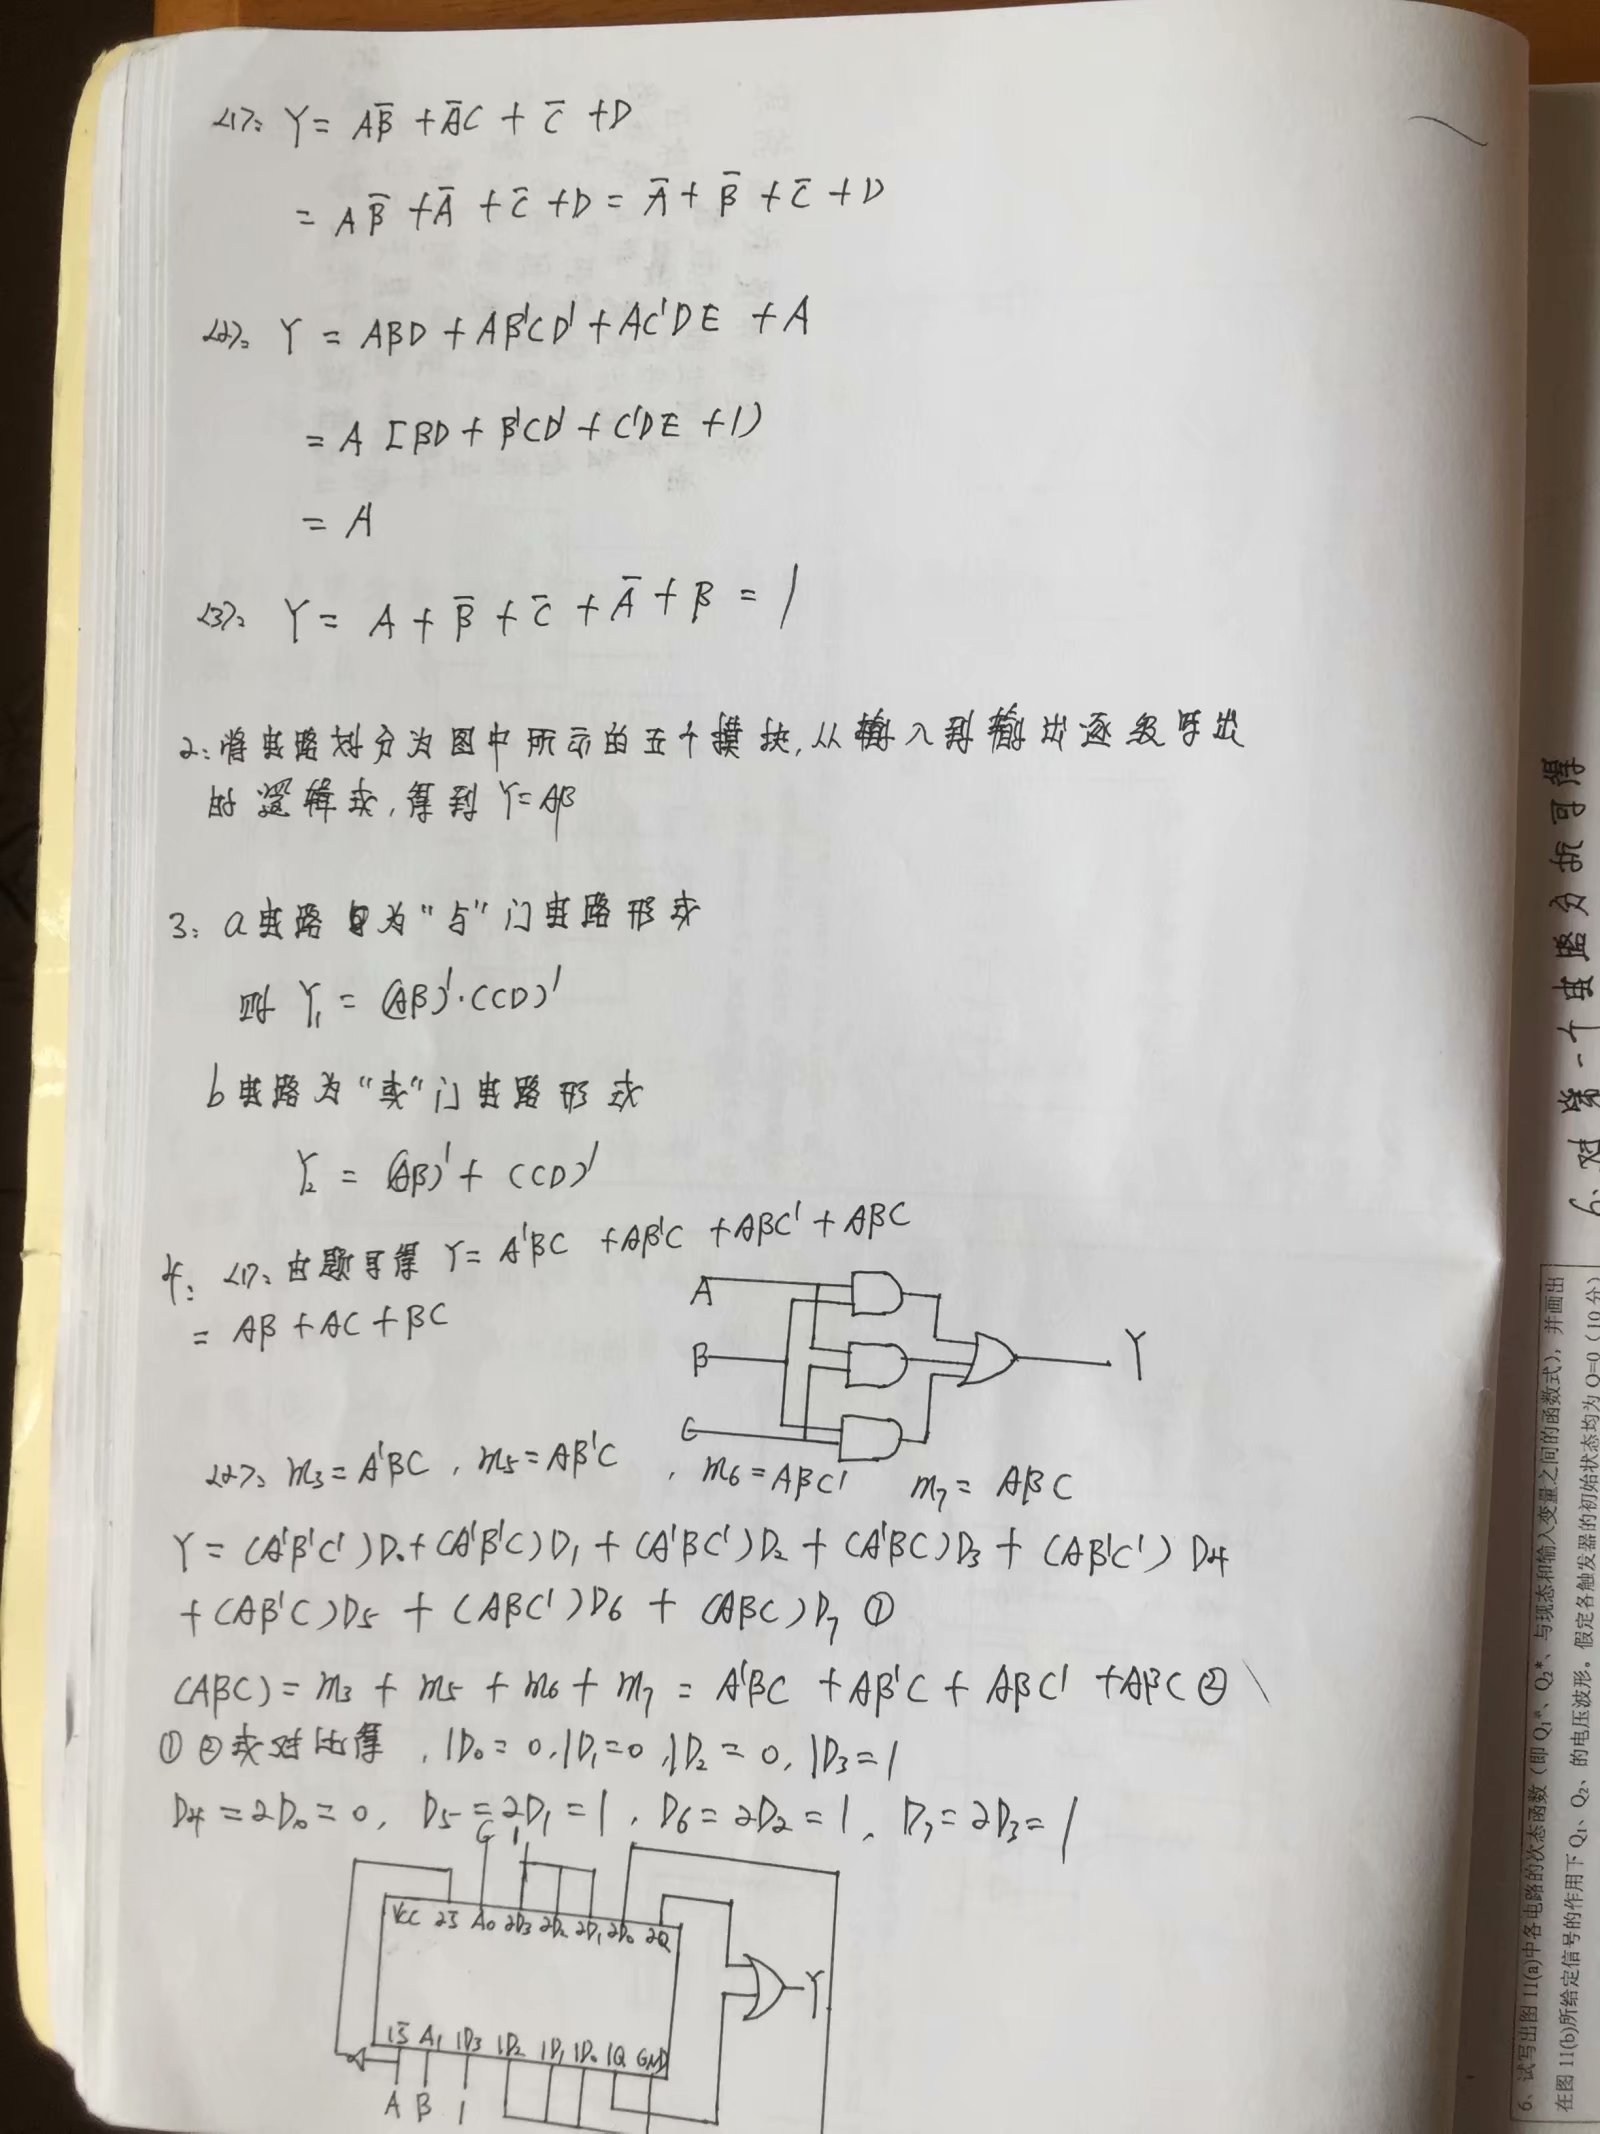 <1>: Y = AB̅ + A̅C + C̅ + D
= AB̅ + A̅ + C̅ + D = A̅ + B̅ + C̅ + D
<2>: Y = ABD + AB'CD' + AC'DE + A
= A [BD + B'CD' + C'DE + 1)
= A
<3>: Y = A + B̅ + C̅ + A̅ + B = 1
2: 将电路划分为图中所示的五个模块, 从输入到输出逐级写出
的逻辑式, 得到 Y=AB
3: a电路 为"与"门电路形式
则 Y₁ = (AB)'·(CD)'
b电路为"或"门电路形式
Y₂ = (AB)' + (CD)'
4: <1>: 由题可得 Y = A'BC + AB'C + ABC' + ABC
= AB + AC + BC
A
B
C
Y
<2>: m₃ = A'BC , m₅ = AB'C , m₆ = ABC' m₇ = ABC
Y = (A'B'C')D₀ + (A'B'C)D₁ + (A'BC')D₂ + (A'BC)D₃ + (AB'C')D4
+ (AB'C)D₅ + (ABC')D6 + (ABC)D₇ ①
(ABC) = m₃ + m₅ + m₆ + m₇ = A'BC + AB'C + ABC' + ABC ②
① ②式对比得 , 1D₀ = 0, 1D₁ = 0, 1D₂ = 0, 1D₃ = 1
D4 = 2D₀ = 0, D₅ = 2D₁ = 1, D₆ = 2D₂ = 1, D₇ = 2D₃ = 1
C 1
VCC 2S̅ A₀ 2D₃ 2D₂ 2D₁ 2D₀ 2Q
Y
1S̅ A₁ 1D₃ 1D₂ 1D₁ 1D₀ 1Q GND
A B 1
6、对第一个电路分析可得
6、试写出图 11(a)中各电路的次态函数（即 Q₁*、Q₂*、与现态和输入变量之间的函数式），并画出
在图 11(b)所给定信号的作用下 Q₁、Q₂、的电压波形。假定各触发器的初始状态均为 Q=0（10 分）